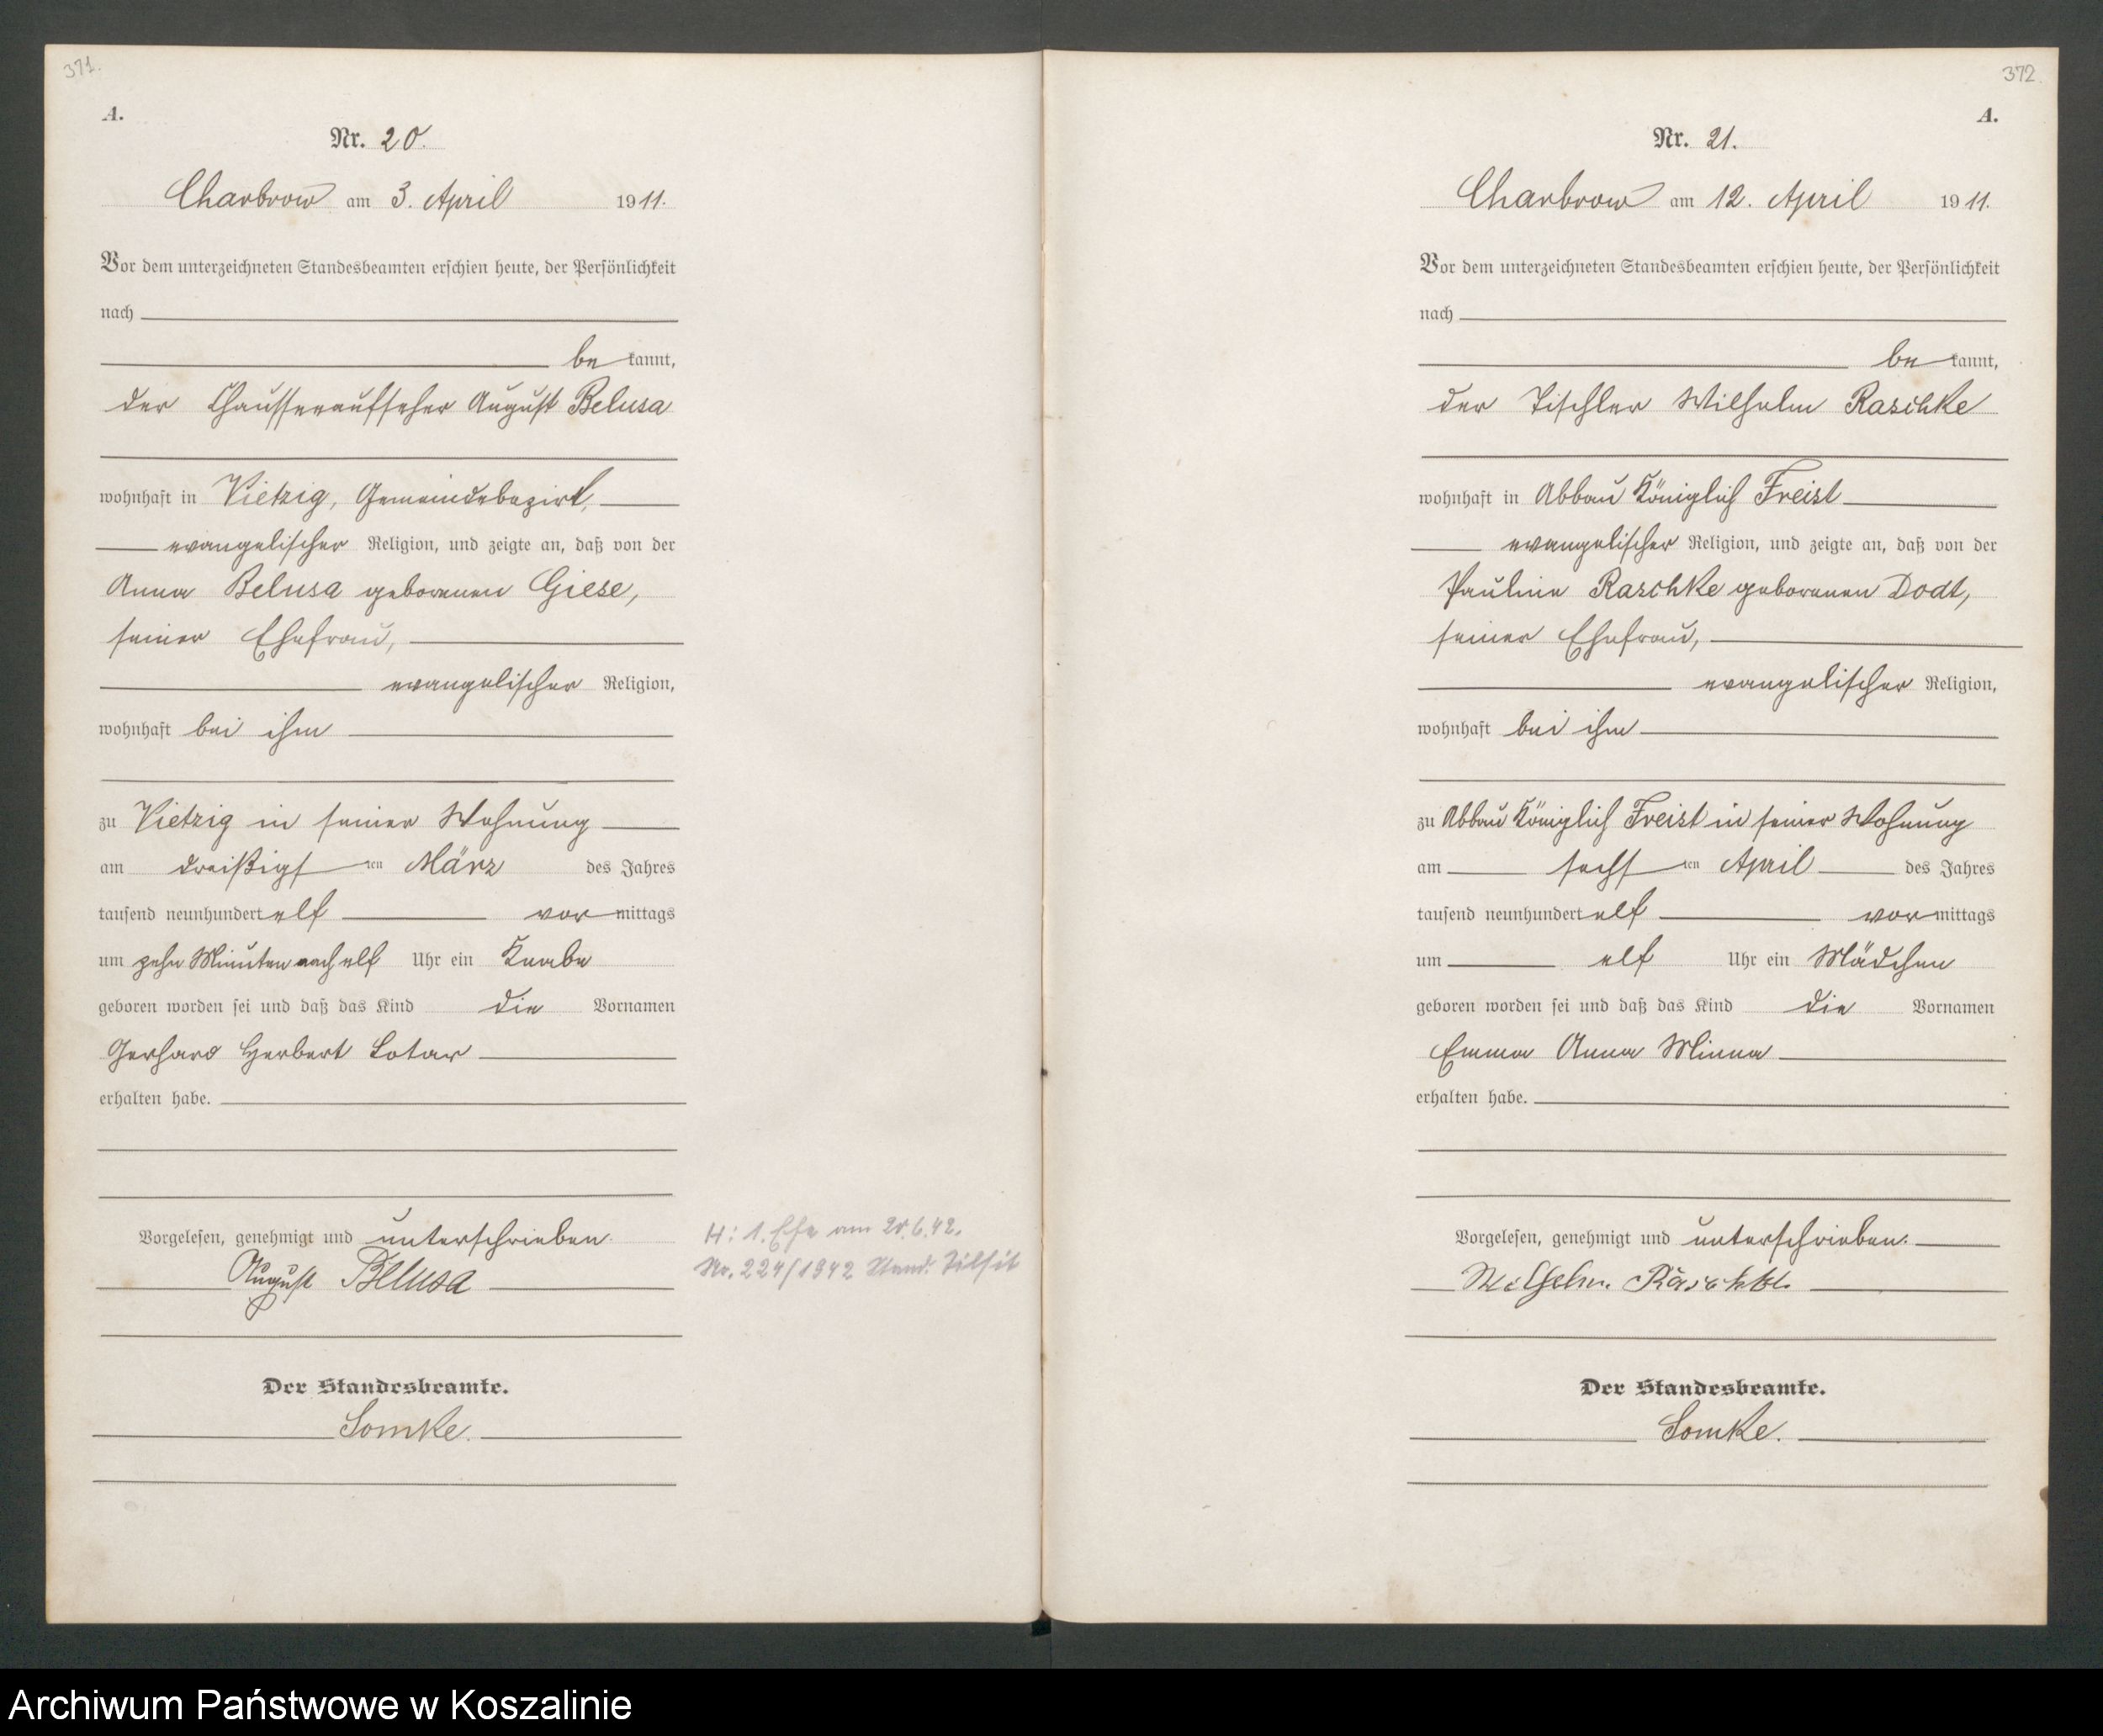 371.
A.
Nr. 20.
Charbrow am 3. April 1911.
Vor dem unterzeichneten Standesbeamten erschien heute, der Persönlichkeit
nach
be kannt,
der Chausseeaufseher August Belusa
wohnhaft in Vietzig, Gemeindebezirk,
evangelischer Religion, und zeigte an, daß von der
Anna Belusa geborenen Giese,
seiner Ehefrau,
evangelischer Religion,
wohnhaft bei ihm
zu Vietzig in seiner Wohnung
am dreißigst ten März des Jahres
tausend neunhundert elf vor mittags
um zehn Minuten nach elf Uhr ein Knabe
geboren worden sei und daß das Kind die Vornamen
Gerhard Herbert Lotar
erhalten habe.
Vorgelesen, genehmigt und unterschrieben.
August Belusa
H: 1. Ehe am 20.6.42.
Nr. 224/1942 Stand. Tilsit
Der Standesbeamte.
Somke.
372.
A.
Nr. 21.
Charbrow am 12. April 1911.
Vor dem unterzeichneten Standesbeamten erschien heute, der Persönlichkeit
nach
be kannt,
der Tischler Wilhelm Raschke
wohnhaft in Abbau Königlich Freist
evangelischer Religion, und zeigte an, daß von der
Pauline Raschke geborenen Dodt,
seiner Ehefrau,
evangelischer Religion,
wohnhaft bei ihm
zu Abbau Königlich Freist in seiner Wohnung
am sechs ten April des Jahres
tausend neunhundert elf vor mittags
um elf Uhr ein Mädchen
geboren worden sei und daß das Kind die Vornamen
Emma Anna Minna
erhalten habe.
Vorgelesen, genehmigt und unterschrieben.
Wilhelm Raschke
Der Standesbeamte.
Somke.
Archiwum Państwowe w Koszalinie